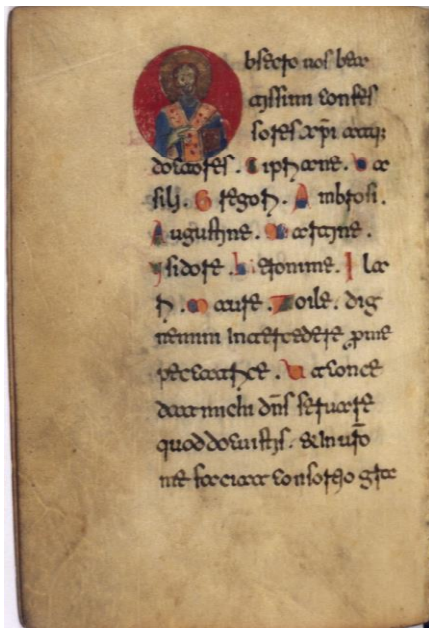 bsecro uos bea
tissimi confes
sores xpi atq;
doctores. Eiphane. Ba
silii. Gregorii. Ambrosi.
Augustine. Martine.
Isidore. Hieronime. Ila
ri. Maure. Zoile. dig
nemini intercedere p me
peccatrice. Ut conce
dat michi dns seruare
quod docuistis. & in uro
me faciat consortio glae